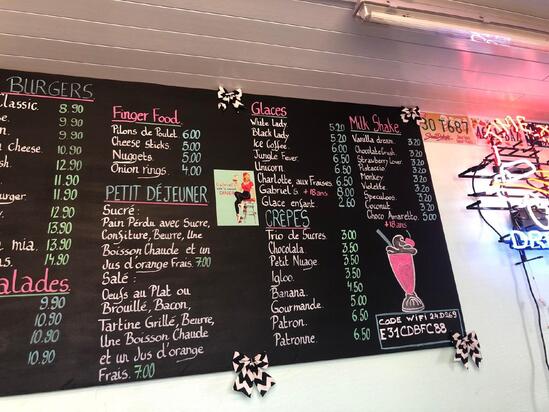 BURGERS
Classic. 8.90
8.90
Cheese 9.90
12.90
11.90
11.90
12.90
13.90
mia. 13.90
14.90
Salades.
9.90
10.90
10.90
10.90
Finger Food.
Pilons de Poulet. 6.00
Cheese sticks. 5.00
Nuggets. 5.00
Onion rings. 4.00
PETIT DÉJEUNER
Sucré:
Pain Perdu avec Sucre,
Confiture, Beurre, Une
Boisson Chaude et un
Jus d'orange Frais. 7.00
Salé:
Oeufs au Plat ou
Brouillé, Bacon,
Tartine Grillé, Beurre,
Une Boisson Chaude
et un Jus d'orange
Frais. 7.00
Glaces
White Lady 5.20
Black Lady 5.20
Ice Coffee. 6.00
Jungle Fever. 5.20
Unicorn. 5.20
Charlotte aux Fraises 5.20
Gabriel's +18ans 6.50
Glace enfant. 2.60
CRÊPES
Trio de Sucres. 3.00
Chocolala. 3.50
Petit Nuage. 3.50
Igloo. 3.50
Banana. 4.50
Gourmande. 5.00
Patron. 6.50
Patronne. 6.50
Milk Shake.
Vanilla dream. 3.20
Chocolatefruit. 3.20
Strawberry Lover. 3.20
Pistaccio 3.20
Monkey 3.20
Violette. 3.20
Speculoos. 3.20
Coconut 3.20
Choco Amaretto. 5.20
+18ans
CODE WIFI 24D569
E31CDBFC88
30 T687